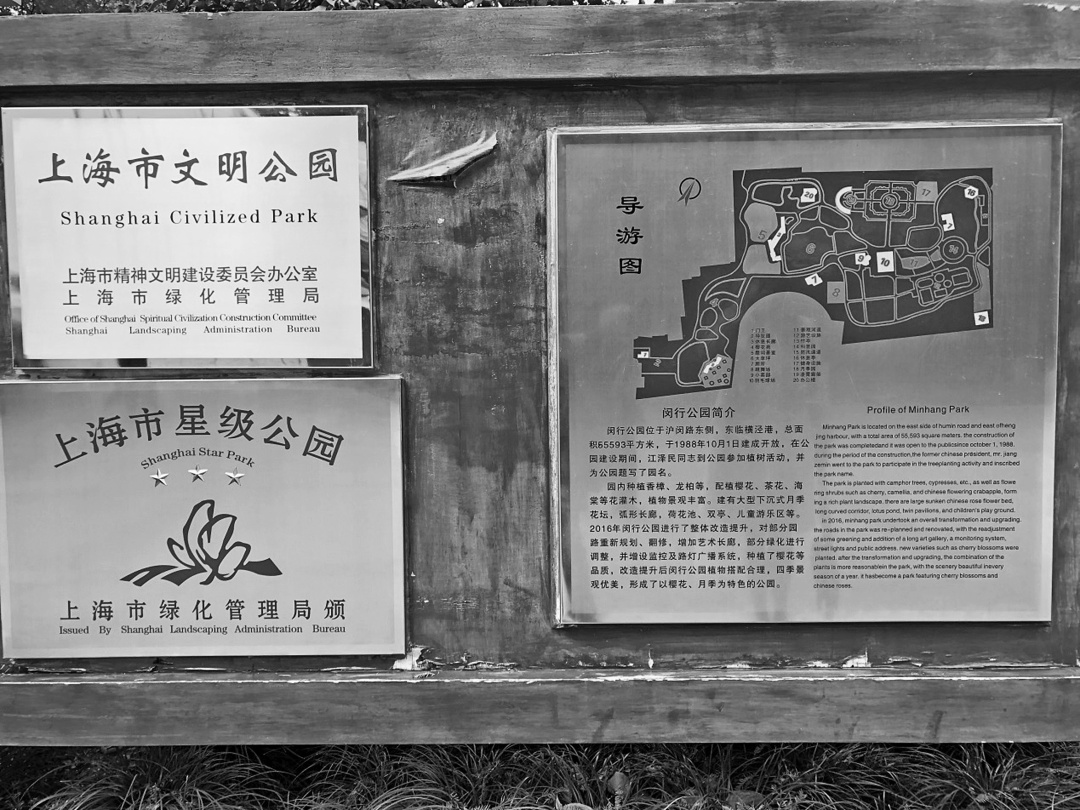 上海市文明公园
Shanghai Civilized Park
上海市精神文明建设委员会办公室
上海市绿化管理局
Office of Shanghai Spiritual Civilization Construction Committee
Shanghai Landscaping Administration Bureau
上海市星级公园
Shanghai Star Park
上海市绿化管理局颁
Issued By Shanghai Landscaping Administration Bureau
导游图
闵行公园简介
闵行公园位于沪闵路东侧，东临横泾港，总面
积65593平方米，于1988年10月1日建成开放，在公
园建设期间，江泽民同志到公园参加植树活动，并
为公园题写了园名。
园内种植香樟、龙柏等，配植樱花、茶花、海
棠等花灌木，植物景观丰富。建有大型下沉式月季
花坛，弧形长廊，荷花池、双亭、儿童游乐区等。
2016年闵行公园进行了整体改造提升，对部分园
路重新规划、翻修，增加艺术长廊，部分绿化进行
调整，并增设监控及路灯广播系统，种植了樱花等
品质，改造提升后闵行公园植物搭配合理，四季景
观优美，形成了以樱花、月季为特色的公园。
Profile of Minhang Park
Minhang Park is located on the east side of humin road and east ofheng
jing harbour, with a total area of 55,593 square maters. the construction of
the park was completedand it was open to the publicsince october 1, 1988.
during the period of the construction,the former chinese president, mr. jiang
zemin went to the park to participate in the treeplanting activity and inscribed
the park name.
The park is planted with camphor trees, cypresses, etc., as well as flowe
ring shrubs such as cherry, camellia, and chinese flowering crabapple, form
ing a rich plant landscape. there are large sunken chinese rose flower bed,
long curved corridor, lotus pond, twin pavilions, and children's play ground.
in 2016, minhang park undertook an overall transformation and upgrading.
the roads in the park was re-planned and renovated, with the readjustment
of some greening and addition of a long art gallery, a monitoring system,
street lights and public address. new varieties such as cherry blossoms were
planted. after the transformation and upgrading, the combination of the
plants is more reasonablein the park, with the scenery beautiful inevery
season of a year. it hasbecome a park featuring cherry blossoms and
chinese roses.